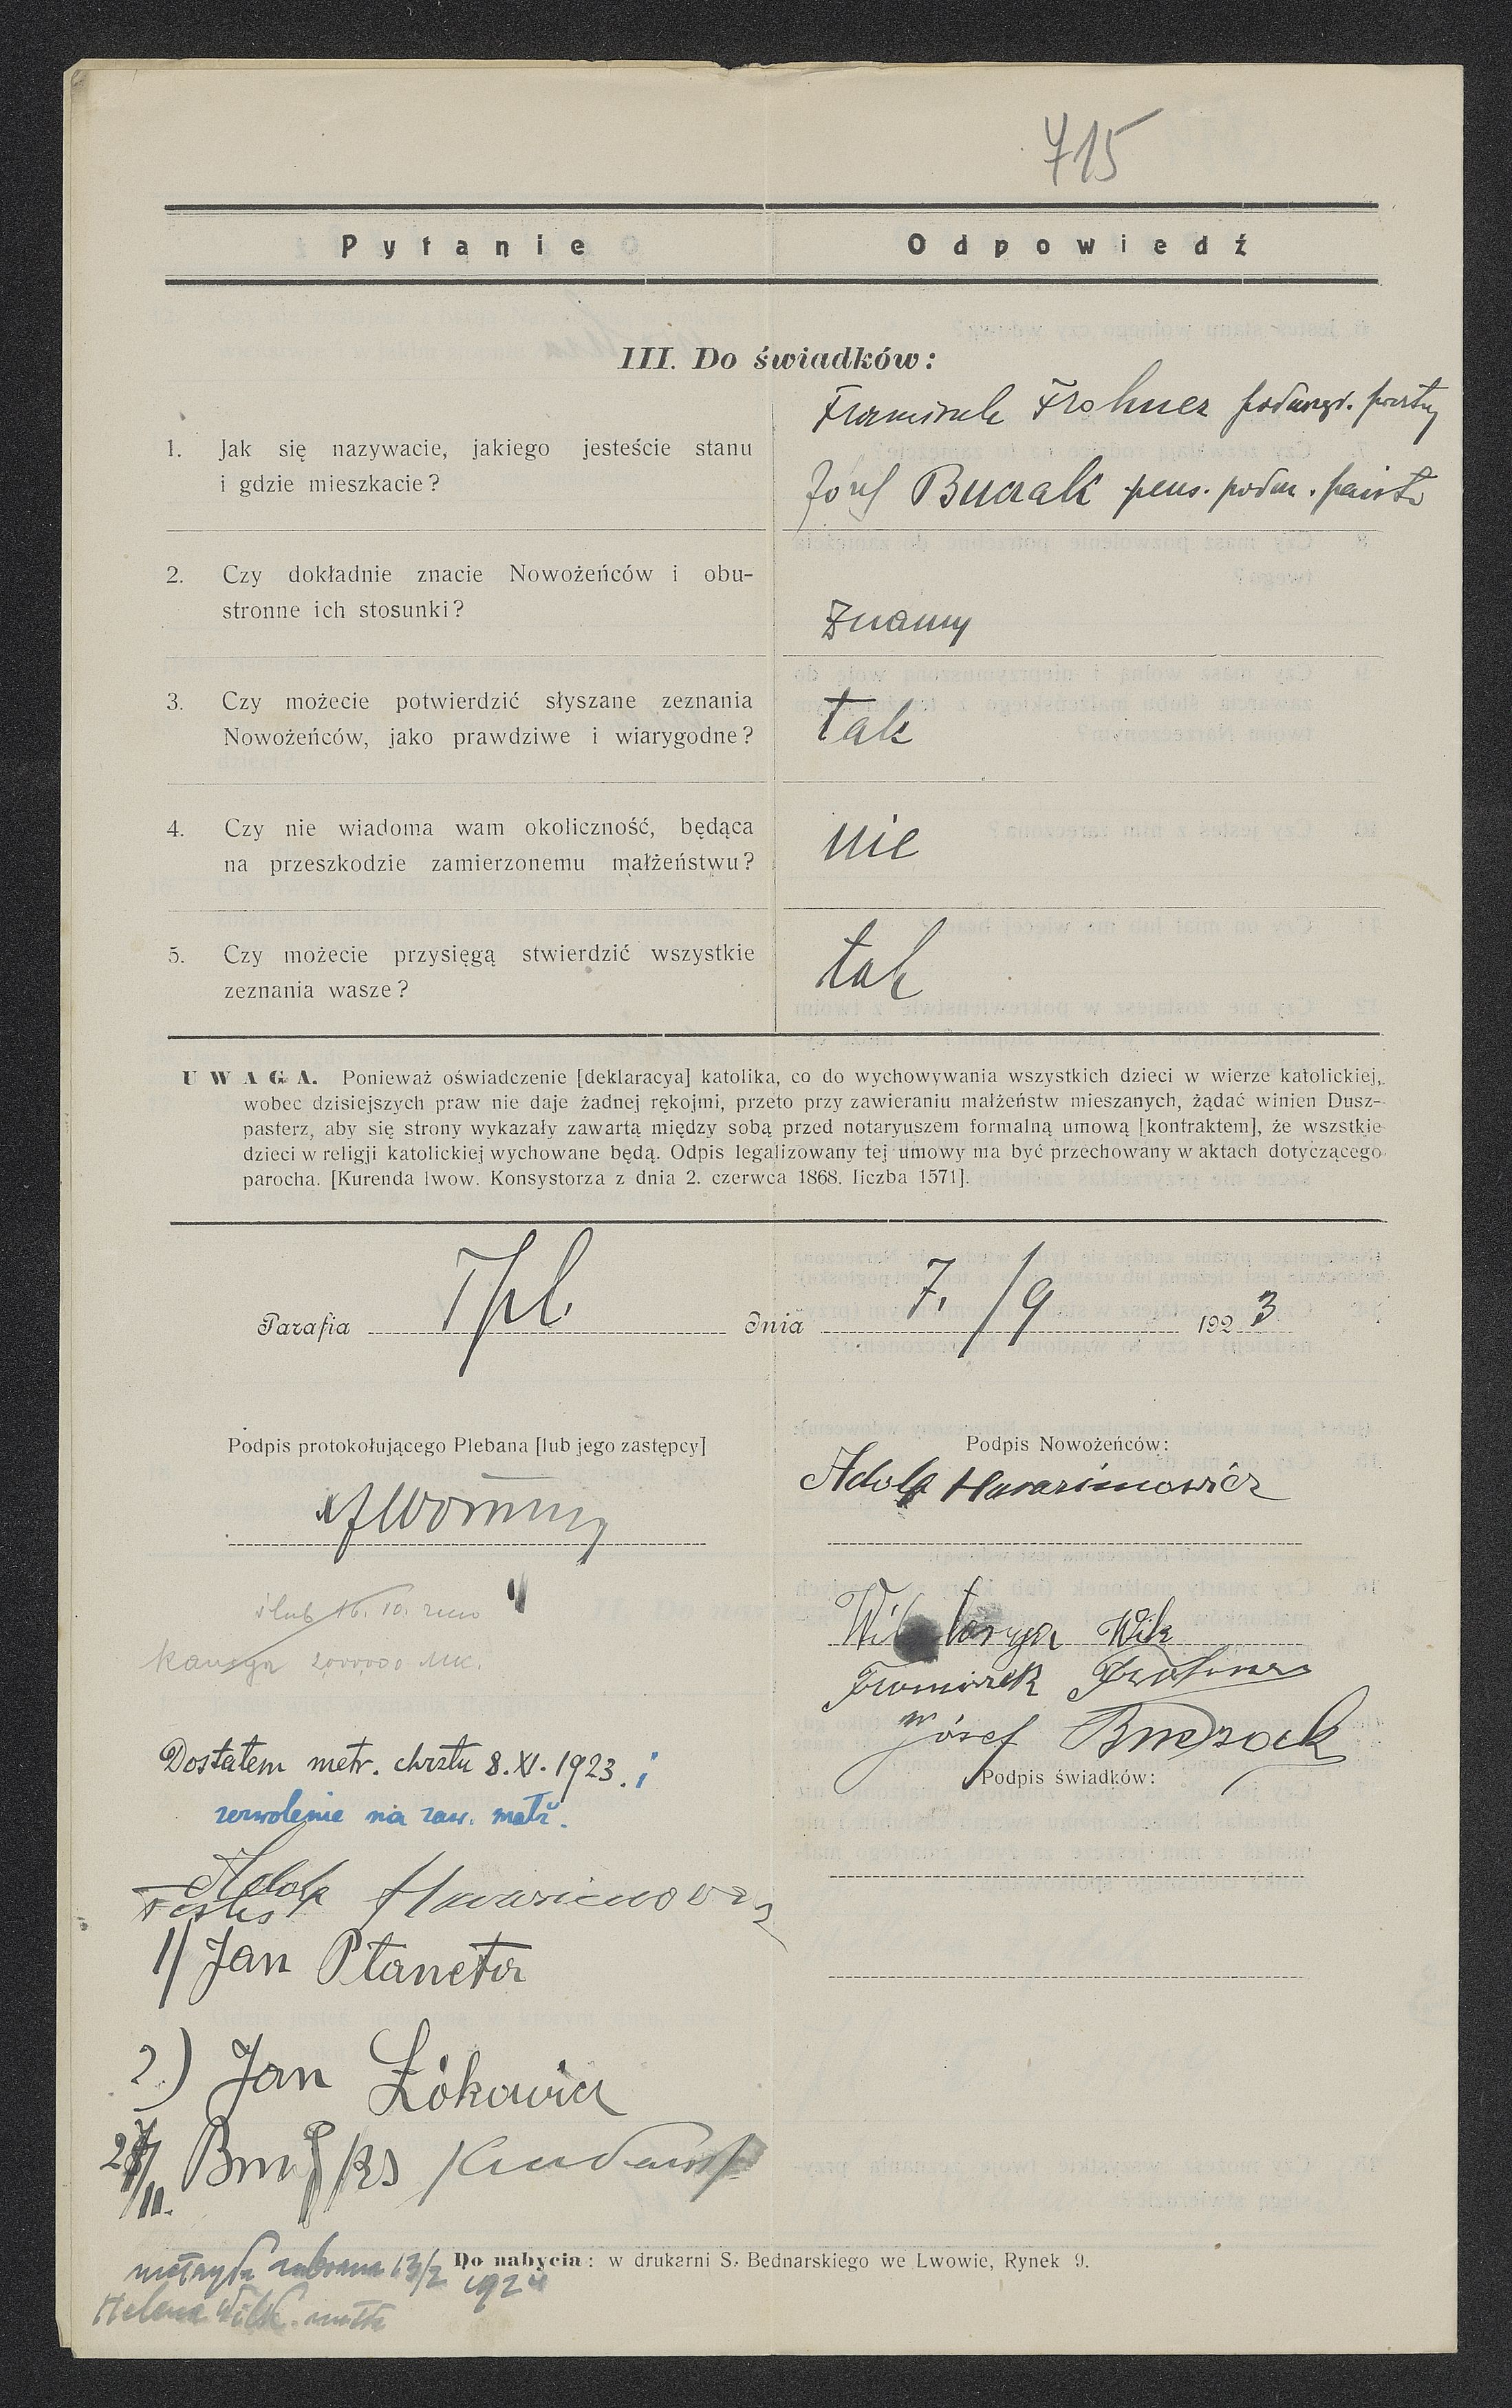 715
Pytanie
Odpowiedź
III. Do świadków:
1. Jak się nazywacie, jakiego jesteście stanu
i gdzie mieszkacie?
Franciszek Frohner
Józef pens.
2. Czy dokładnie znacie Nowożeńców i obu-
stronne ich stosunki?
Znamy
3. Czy możecie potwierdzić słyszane zeznania
Nowożeńców, jako prawdziwe i wiarygodne?
tak
4. Czy nie wiadoma wam okoliczność, będąca
na przeszkodzie zamierzonemu małżeństwu?
nie
5. Czy możecie przysięgą stwierdzić wszystkie
zeznania wasze?
tak
UWAGA. Ponieważ oświadczenie [deklaracya] katolika, co do wychowywania wszystkich dzieci w wierze katolickiej,
wobec dzisiejszych praw nie daje żadnej rękojmi, przeto przy zawieraniu małżeństw mieszanych, żądać winien Dusz-
pasterz, aby się strony wykazały zawartą między sobą przed notaryuszem formalną umową [kontraktem], że wszstkie
dzieci w religji katolickiej wychowane będą. Odpis legalizowany tej umowy ma być przechowany w aktach dotyczącego
parocha. [Kurenda lwow. Konsystorza z dnia 2. czerwca 1868. liczba 1571].
Parafia Tpl. dnia 7./9 1923
Podpis protokołującego Plebana [lub jego zastępcy]
Podpis Nowożeńców:
Adolf Harasimowicz
Wiktorya Wilk
Franciszek Frohner
Józef
Podpis świadków:
ślub 16. 10.
Kaucya 2,000000 Mk.
Dostałem metr. chrztu 8. XI. 1923. i
zezwolenie na zaw. małż.
Adolf Harasimowicz
Testes
1) Jan Płaneta
2) Jan Żókowicz
metryka zabrana 13/2 1924
Helena Wilk matka
Do nabycia: w drukarni S. Bednarskiego we Lwowie, Rynek 9.